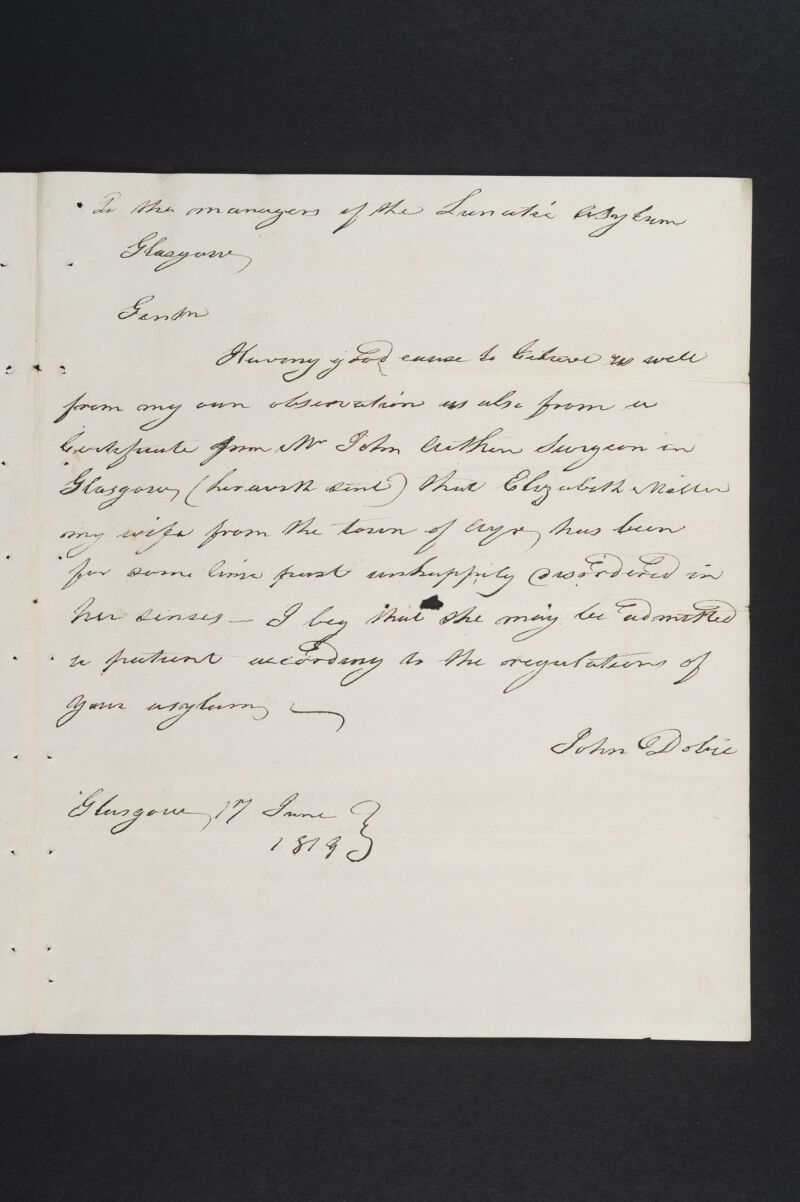 To the managers of the Lunatic Asylum
Glasgow
Gentn
Having good cause to believe as well
from my own observation as also from a
Certificate from Mr John Aitken Surgeon in
Glasgow (herewith sent) that Elizabeth Miller
my wife from the town of Ayr, has been
for some time past unhappily disordered in
her senses — I beg that she may be admitted
a patient according to the regulations of
your asylum,
John Dobie
Glasgow, 17 June
1819